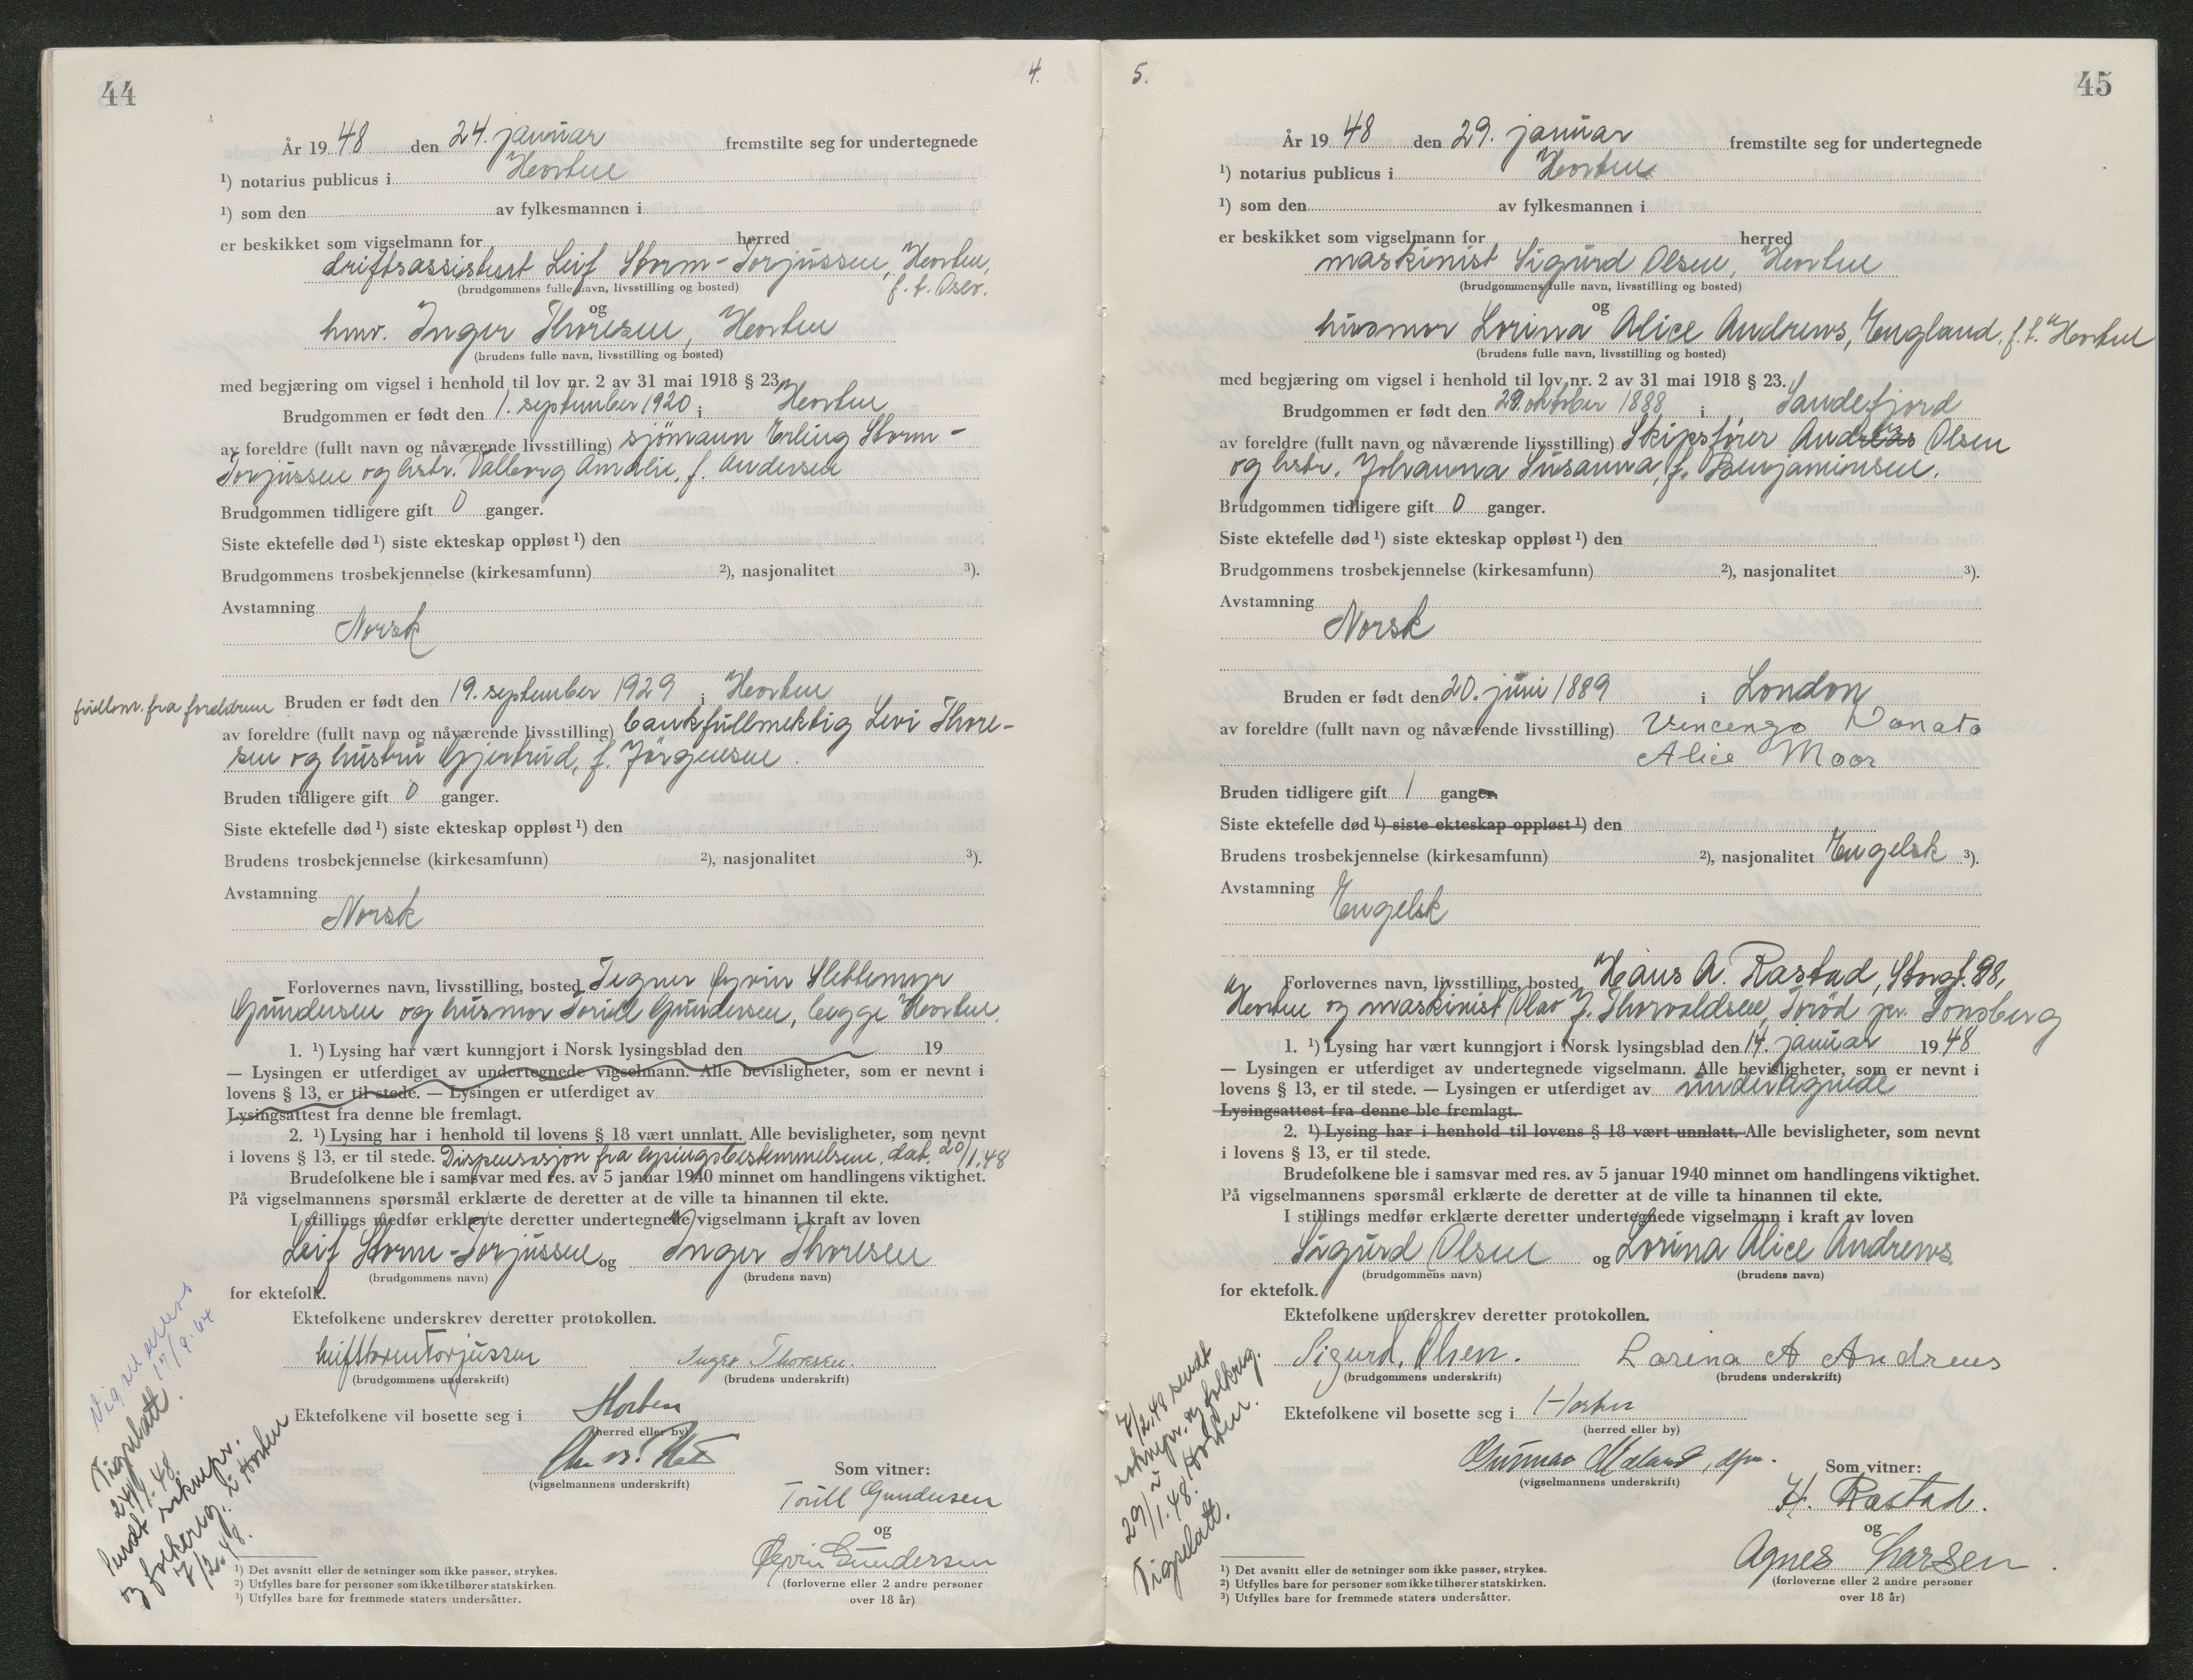 44
4.
År 19 48 den 24. januar fremstilte seg for undertegnede
¹) notarius publicus i Horten
¹) som den av fylkesmannen i
er beskikket som vigselmann for herred
driftsassistent Leif Storm-Torjussen, Horten,
(brudgommens fulle navn, livsstilling og bosted)
f. t. Oslo.
og
hmv. Inger Thoresen, Horten
(brudens fulle navn, livsstilling og bosted)
med begjæring om vigsel i henhold til lov nr. 2 av 31 mai 1918 § 23.
Brudgommen er født den 1. september 1920 i Horten
av foreldre (fullt navn og nåværende livsstilling) sjömann Erling Storm-
Torjussen og hstr. Valborg Amalie, f. Andersen
Brudgommen tidligere gift 0 ganger.
Siste ektefelle død ¹) siste ekteskap oppløst ¹) den
Brudgommens trosbekjennelse (kirkesamfunn) ²), nasjonalitet ³).
Avstamning
Norsk
fullm. fra foreldrene
Bruden er født den 19. september 1929 i Horten
av foreldre (fullt navn og nåværende livsstilling) bankfullmektig Levi Thore-
sen og hustru Gjertrud, f. Jörgensen.
Bruden tidligere gift 0 ganger.
Siste ektefelle død ¹) siste ekteskap oppløst ¹) den
Brudens trosbekjennelse (kirkesamfunn) ²), nasjonalitet ³).
Avstamning
Norsk
Forlovernes navn, livsstilling, bosted Tegner Øyvin Slettemyr
Gundersen og husmor Torill Gundersen, begge Horten.
1. ¹) Lysing har vært kunngjort i Norsk lysingsblad den 19
— Lysingen er utferdiget av undertegnede vigselmann. Alle bevisligheter, som er nevnt i
lovens § 13, er til stede. — Lysingen er utferdiget av
Lysingsattest fra denne ble fremlagt.
2. ¹) Lysing har i henhold til lovens § 18 vært unnlatt. Alle bevisligheter, som nevnt
i lovens § 13, er til stede. Dispensasjon fra lysingsbestemmelsene, dat. 20/1.48
Brudefolkene ble i samsvar med res. av 5 januar 1940 minnet om handlingens viktighet.
På vigselmannens spørsmål erklærte de deretter at de ville ta hinannen til ekte.
I stillings medfør erklærte deretter undertegnede vigselmann i kraft av loven
Leif Storm-Torjussen og Inger Thoresen
(brudgommens navn) (brudens navn)
for ektefolk.
Ektefolkene underskrev deretter protokollen.
Leif Storm Torjussen Inger Thoresen.
(brudgommens underskrift) (brudens underskrift)
Ektefolkene vil bosette seg i Horten
(herred eller by)
(vigselmannens underskrift)
Som vitner:
Torill Gundersen
og
Øyvin Gundersen
(forloverne eller 2 andre personer
over 18 år)
17/9.64
Vigselatt.
24/1.48
Sendt soknepr.
og folkereg. i Horten
7/2.48.
¹) Det avsnitt eller de setninger som ikke passer, strykes.
²) Utfylles bare for personer som ikke tilhører statskirken.
³) Utfylles bare for fremmede staters undersåtter.
5.
45
År 19 48 den 29. januar fremstilte seg for undertegnede
¹) notarius publicus i Horten
¹) som den av fylkesmannen i
er beskikket som vigselmann for herred
maskinist Sigurd Olsen, Horten
(brudgommens fulle navn, livsstilling og bosted)
og
husmor Lorina Alice Andrews, England. f. t. Horten
(brudens fulle navn, livsstilling og bosted)
med begjæring om vigsel i henhold til lov nr. 2 av 31 mai 1918 § 23.
Brudgommen er født den 29. oktober 1888 i Sandefjord
av foreldre (fullt navn og nåværende livsstilling) Skipsfører Andreas Olsen
og hstr. Johanna Susanna, f. Benjaminsen.
Brudgommen tidligere gift 0 ganger.
Siste ektefelle død ¹) siste ekteskap oppløst ¹) den
Brudgommens trosbekjennelse (kirkesamfunn) ²), nasjonalitet ³).
Avstamning
Norsk
Bruden er født den 20. juni 1889 i London
av foreldre (fullt navn og nåværende livsstilling) Vencengo Donato
Alice Moor
Bruden tidligere gift 1 ganger.
Siste ektefelle død ¹) siste ekteskap oppløst ¹) den
Brudens trosbekjennelse (kirkesamfunn) ²), nasjonalitet Engelsk ³).
Avstamning
Engelsk
Forlovernes navn, livsstilling, bosted Hans A. Rastad, Storgt. 98,
Horten og maskinist Olav J. Thorvaldsen, Torød pr. Tønsberg
1. ¹) Lysing har vært kunngjort i Norsk lysingsblad den 14. januar 19 48
— Lysingen er utferdiget av undertegnede vigselmann. Alle bevisligheter, som er nevnt i
lovens § 13, er til stede. — Lysingen er utferdiget av undertegnede
Lysingsattest fra denne ble fremlagt.
2. ¹) Lysing har i henhold til lovens § 18 vært unnlatt. Alle bevisligheter, som nevnt
i lovens § 13, er til stede.
Brudefolkene ble i samsvar med res. av 5 januar 1940 minnet om handlingens viktighet.
På vigselmannens spørsmål erklærte de deretter at de ville ta hinannen til ekte.
I stillings medfør erklærte deretter undertegnede vigselmann i kraft av loven
Sigurd Olsen og Lorina Alice Andrews.
(brudgommens navn) (brudens navn)
for ektefolk.
Ektefolkene underskrev deretter protokollen.
Sigurd Olsen. Lorina A Andrews
(brudgommens underskrift) (brudens underskrift)
Ektefolkene vil bosette seg i Horten
(herred eller by)
Gunnar
(vigselmannens underskrift)
Som vitner:
H. Rastad.
og
Agnes Larsen.
(forloverne eller 2 andre personer
over 18 år)
7/2.48 sendt
soknepr. og folkereg.
i Horten.
29/1.48.
Vigselatt.
¹) Det avsnitt eller de setninger som ikke passer, strykes.
²) Utfylles bare for personer som ikke tilhører statskirken.
³) Utfylles bare for fremmede staters undersåtter.